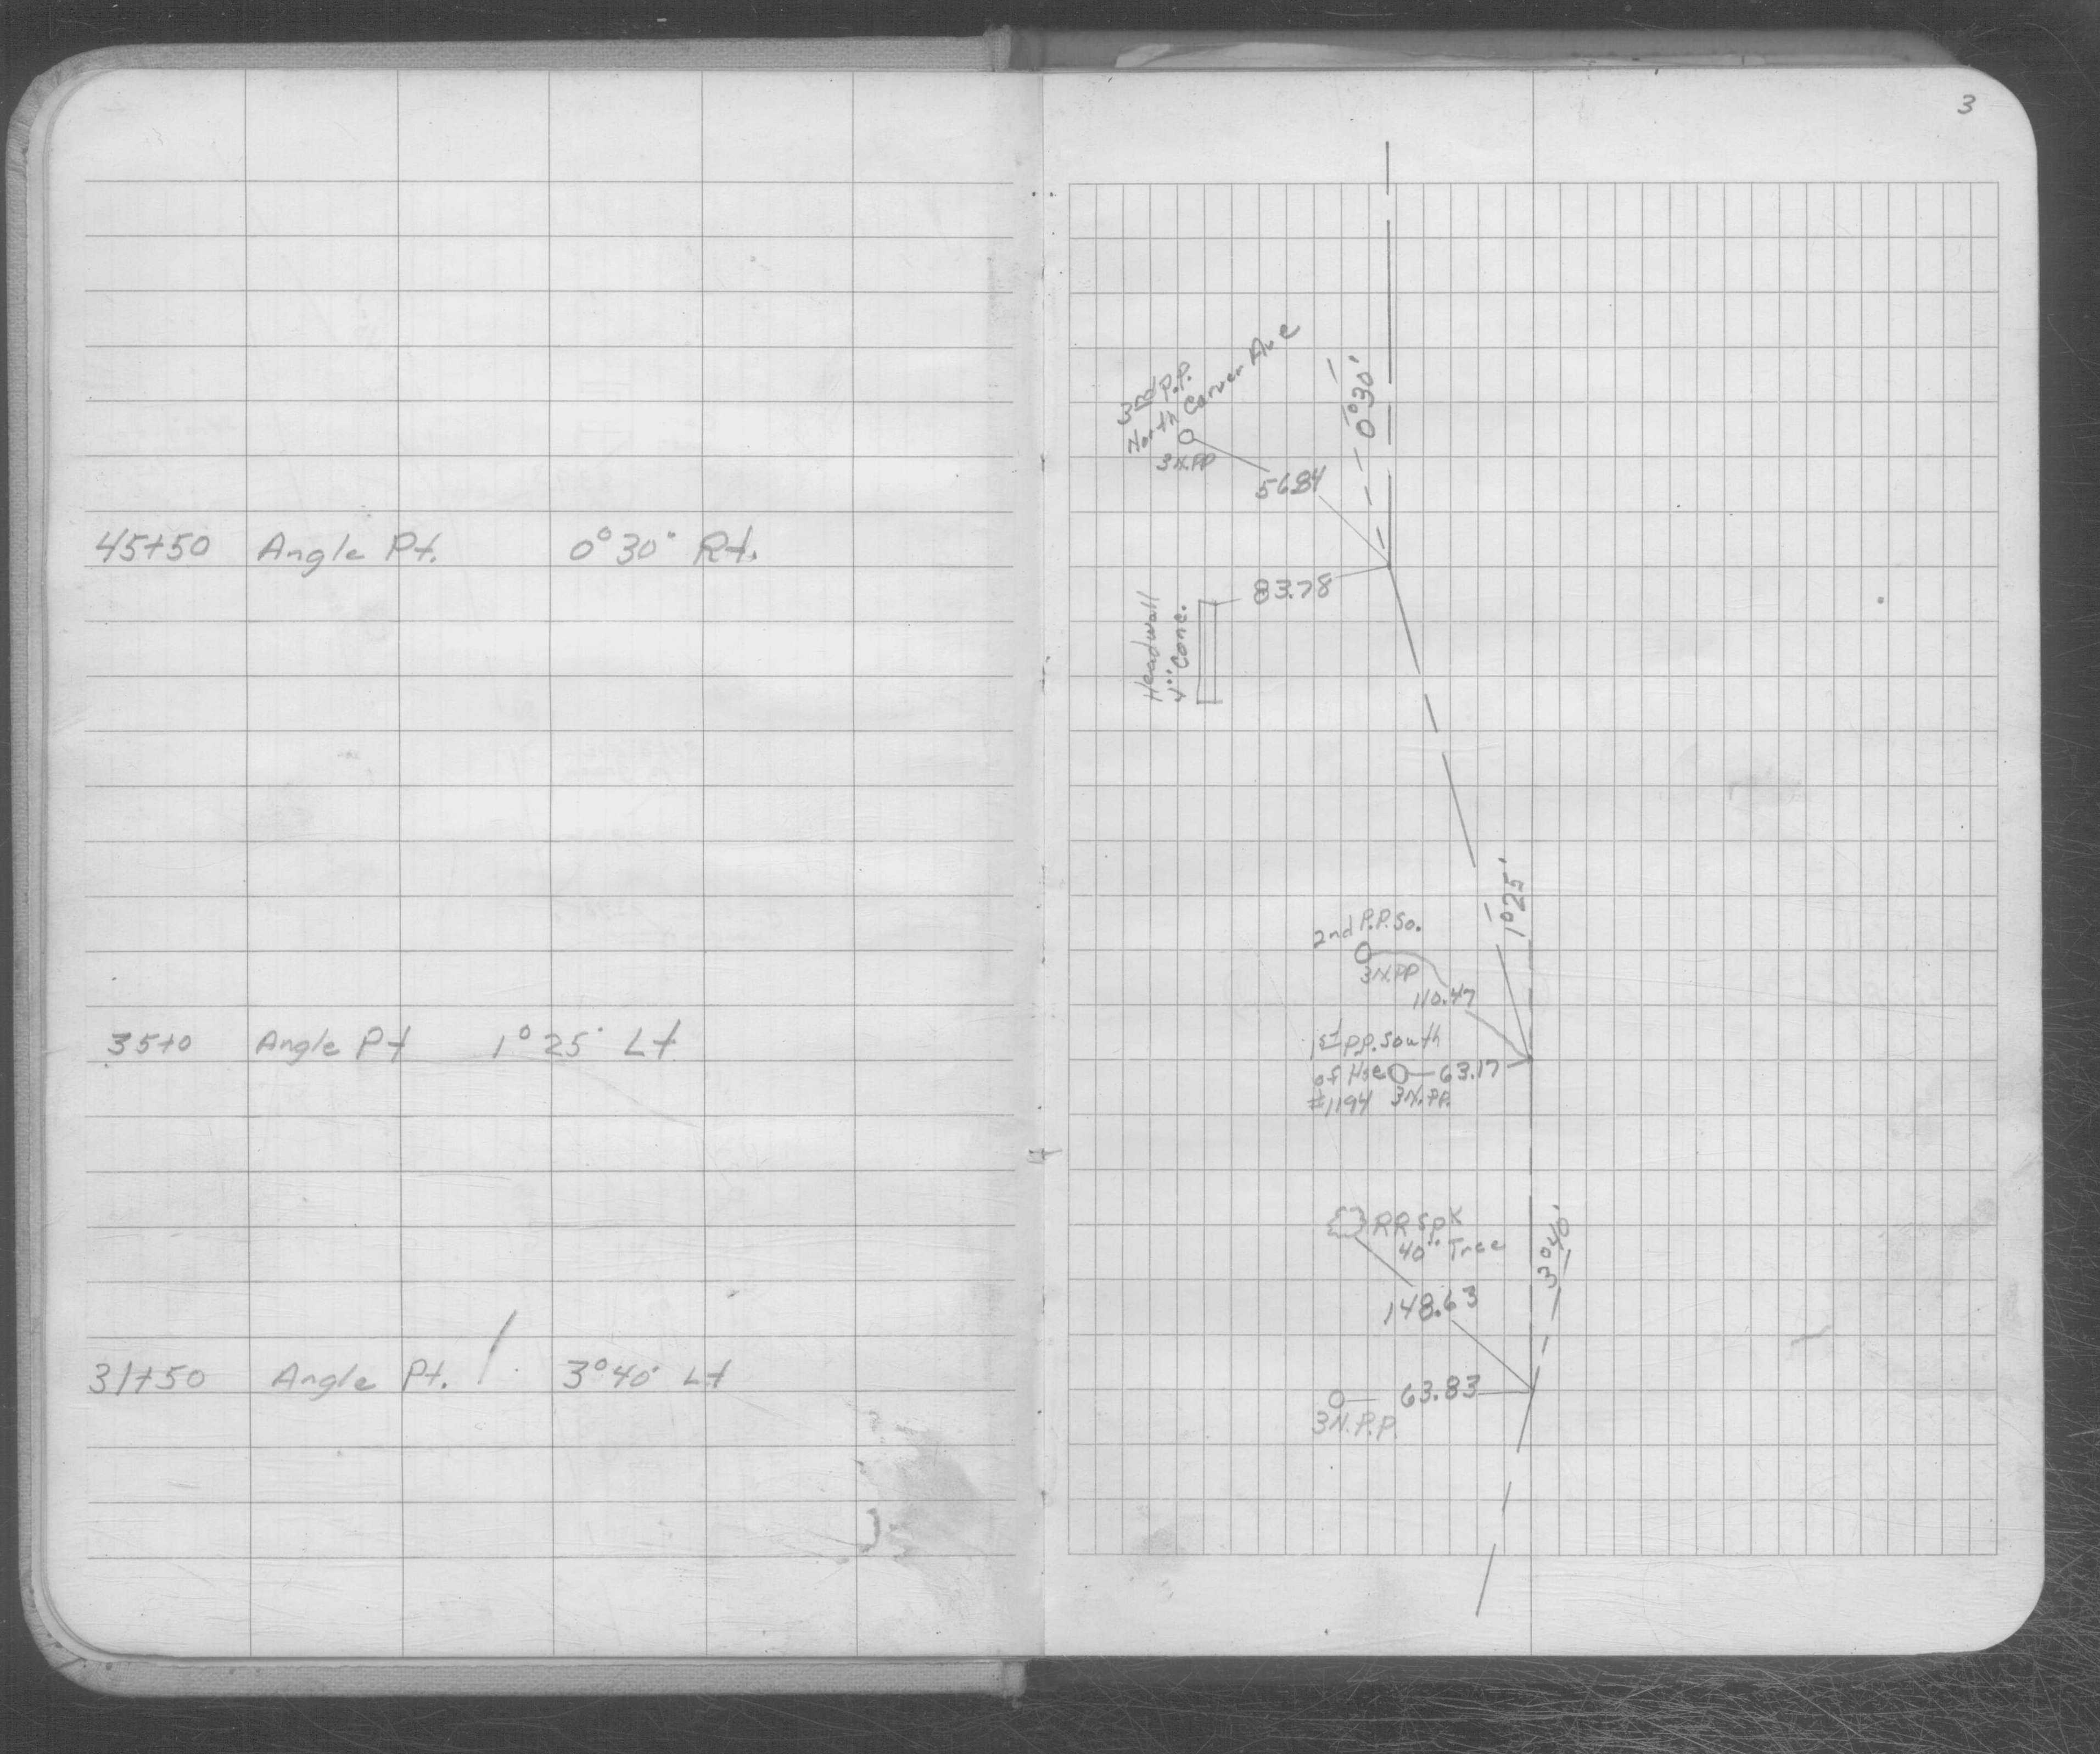 45+50 Angle Pt. 0°30' Rt.
35+0 Angle Pt 1°25' Lt
31+50 Angle Pt. 3°40' Lt
3
3nd P.P.
North Carver Ave
3N.PP
56.84
0°30'
83.78
Headwall
4" Conc.
1°25'
2nd P.P. So.
3N.PP
110.47
1st P.P. South
of Hse 63.17
#1194 3N.PP.
RR Spk
40" Tree
3°40'
148.63
63.83
3N.P.P.